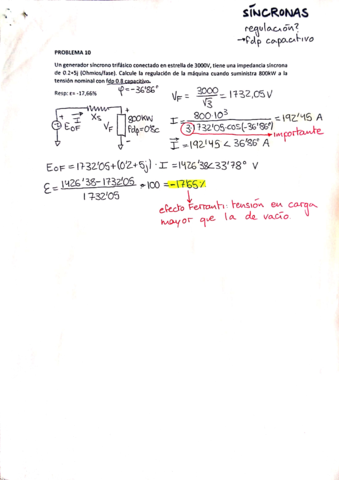 SÍNCRONAS
regulación?
→fdp capacitivo
PROBLEMA 10
Un generador síncrono trifásico conectado en estrella de 3000V, tiene una impedancia síncrona
de 0.2+5j (Ohmios/fase). Calcule la regulación de la máquina cuando suministra 800kW a la
tensión nominal con fdp 0.8 capacitivo.
Resp: ε= -17,66%
φ=-36'86°
V_F = 3000/√3 = 1732,05 V
Xs
I
E_OF
V_F
+
-
800KW
fdp=0'8c
I = 800·10³ / (3·1732'05·cos(-36'86°)) = 192'45 A
importante
I = 192'45 < 36'86° A
E_OF = 1732'05+(0'2+5j)·I = 1426'38<33'78° V
ε = (1426'38-1732'05)/1732'05 *100 = -17'65%
efecto Ferranti: tensión en carga
mayor que la de vacío